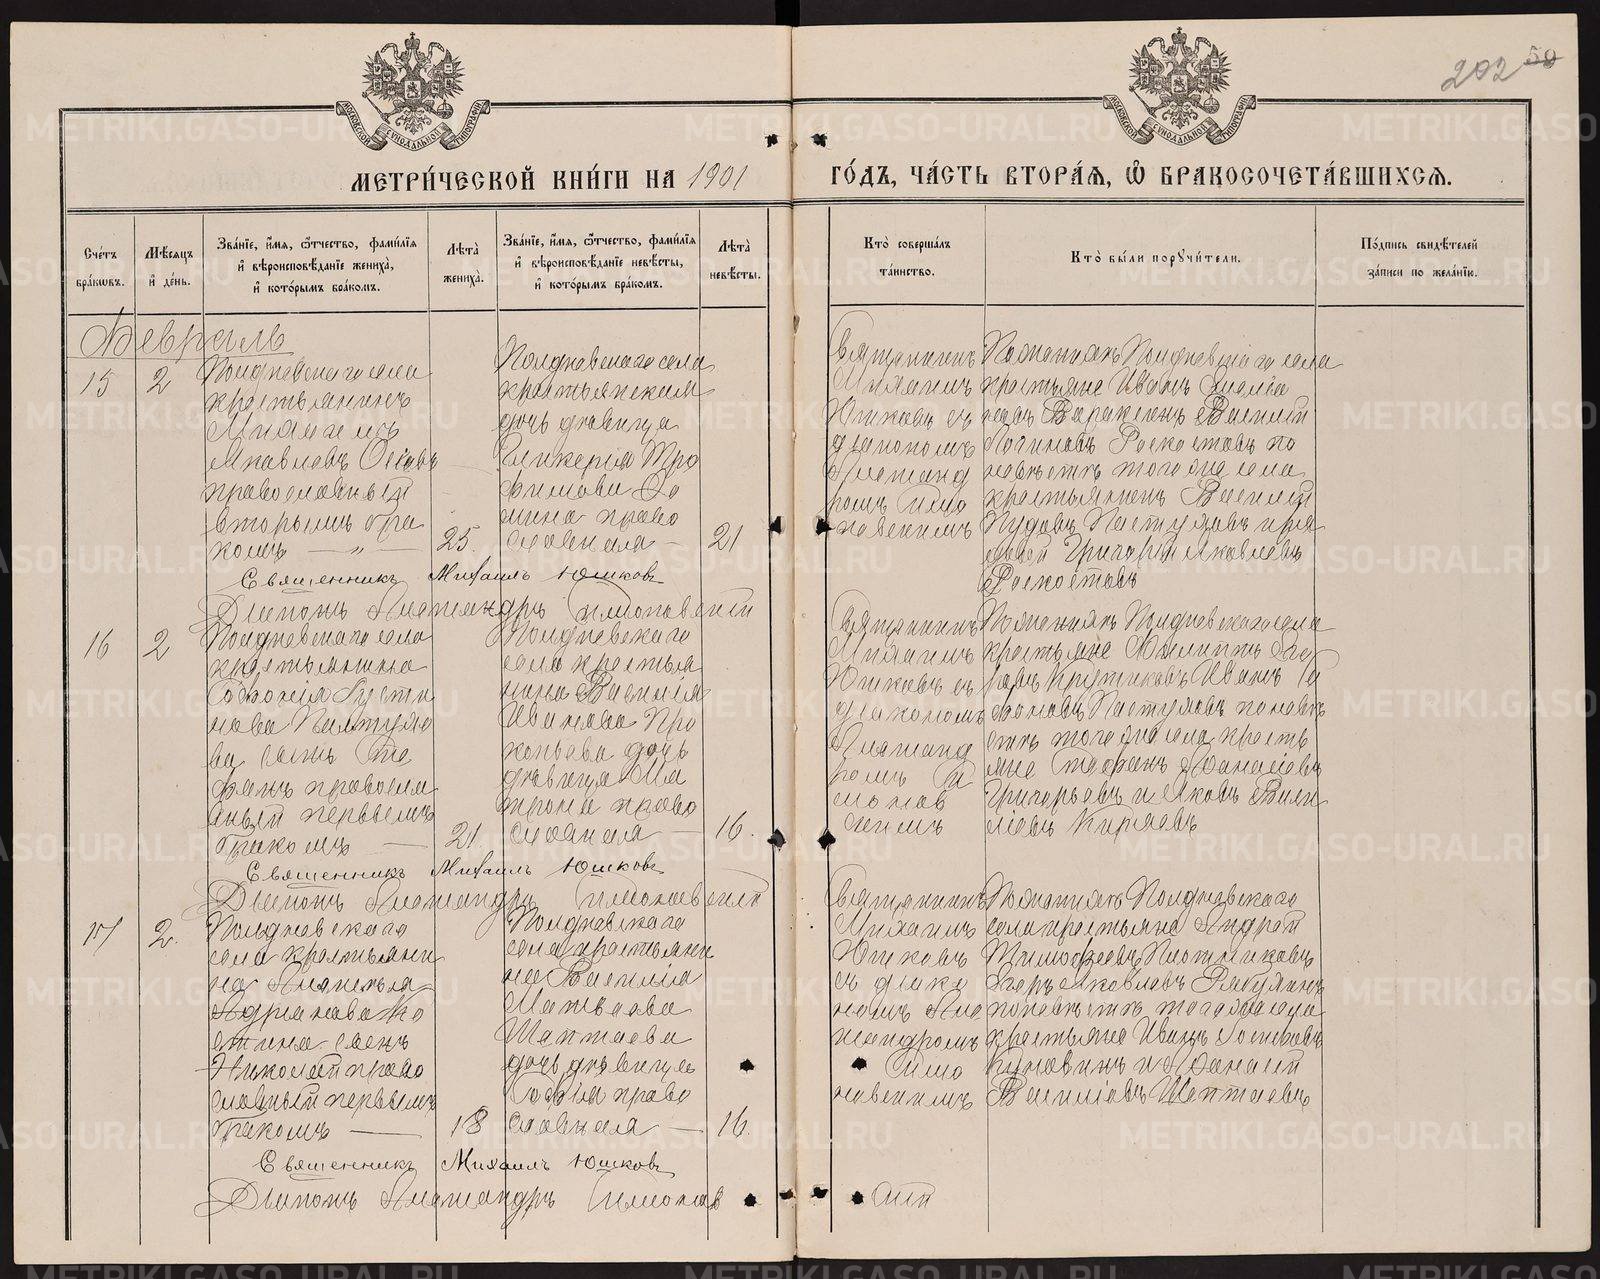 202 59
МОСКОВСКОЙ СѴНОДАЛЬНОЙ ТИПОГРАФІИ
МОСКОВСКОЙ СѴНОДАЛЬНОЙ ТИПОГРАФІИ
МЕТРИ́ЧЕСКОЙ КНИ́ГИ НА 1901
ГО́ДЪ, ЧА́СТЬ ВТОРА́Ѧ, Ѡ҆ БРАКОСОЧЕТА́ВШИХСѦ.
Сче́тъ бра́кѡвъ.
Мѣ́сѧцъ и҆ де́нь.
Зва́нїе, и҆́мѧ, ѻ҆́тчество, фами́лїѧ
и҆ вѣроисповѣ́данїе жениха̀,
и҆ кото́рымъ бра́комъ.
Лѣта̀ жениха̀.
Зва́нїе, и҆́мѧ, ѻ҆́тчество, фами́лїѧ
и҆ вѣроисповѣ́данїе невѣ́сты,
и҆ кото́рымъ бра́комъ.
Лѣта̀ невѣ́сты.
Кто̀ соверша́лъ та́инство.
Кто̀ бы́ли порꙋчи́тели.
По́дпись свидѣ́телей за́писи по жела́нїю.
Февраль
15
2
Полдневскаго села
крестьянинъ
Михаилъ
Яковлевъ
православный
вторымъ бра
комъ — „ —
25.
Полдневскаго села
крестьянская
дочь девица
Гликерія Тро
фимова
православная —
21
Священникъ
Михаилъ
Юшковъ съ
діакономъ
Александ
ромъ Симо
новскимъ
По женихѣ Полдневскаго села
крестьяне Иванъ
Варакинъ Василій
Логиновъ Роскостовъ по
невѣстѣ того же села
крестьянинъ Василій
Пудовъ Пастуховъ и ря
довой Григорій Яковлевъ
Роскостовъ
Священникъ Михаилъ Юшковъ
Діаконъ Александръ Симоновскій
16
2
Полдневскаго села
крестьянина
Пастухо
ва сынъ Сте
фанъ правосла
вный первымъ
бракомъ —
21
Полдневскаго
села крестья
нина Василія
Иванова Про
копьева дочь
девица Ма
трона право
славная —
16.
Священникъ
Михаилъ
Юшковъ съ
діакономъ
Александ
ромъ Си
монов
скимъ
По женихѣ Полдневскаго села
крестьяне Филиппъ
Крутиковъ Иванъ
Пастуховъ по невѣ
стѣ того же села кресть
яне Стефанъ Афанасіевъ
Григорьевъ и Яковъ Васи
ліевъ Киряевъ
Священникъ Михаилъ Юшковъ
Діаконъ Александръ Симоновскій
17
2.
Полдневскаго
села крестьяни
на
Адрианова Ко
сынъ
Николай право
славный первымъ
бракомъ —
18
Полдневскаго
села крестьяни
на Василія
Матвеева
Шаптаева
дочь девица
Софія право
славная —
16.
Священникъ
Михаилъ
Юшковъ
съ діако
номъ Але
ксандромъ
Симо
новскимъ
По женихѣ Полдневскаго
села крестьяне Андрей
Тимофеевъ Плотниковъ
Егоръ Яковлевъ
по невѣстѣ того же села
крестьяне Иванъ Іосифовъ
и Афанасій
Василіевъ Шаптаевъ
Священникъ Михаилъ Юшковъ
Діаконъ Александръ Симонов
скій
METRIKI.GASO-URAL.RU